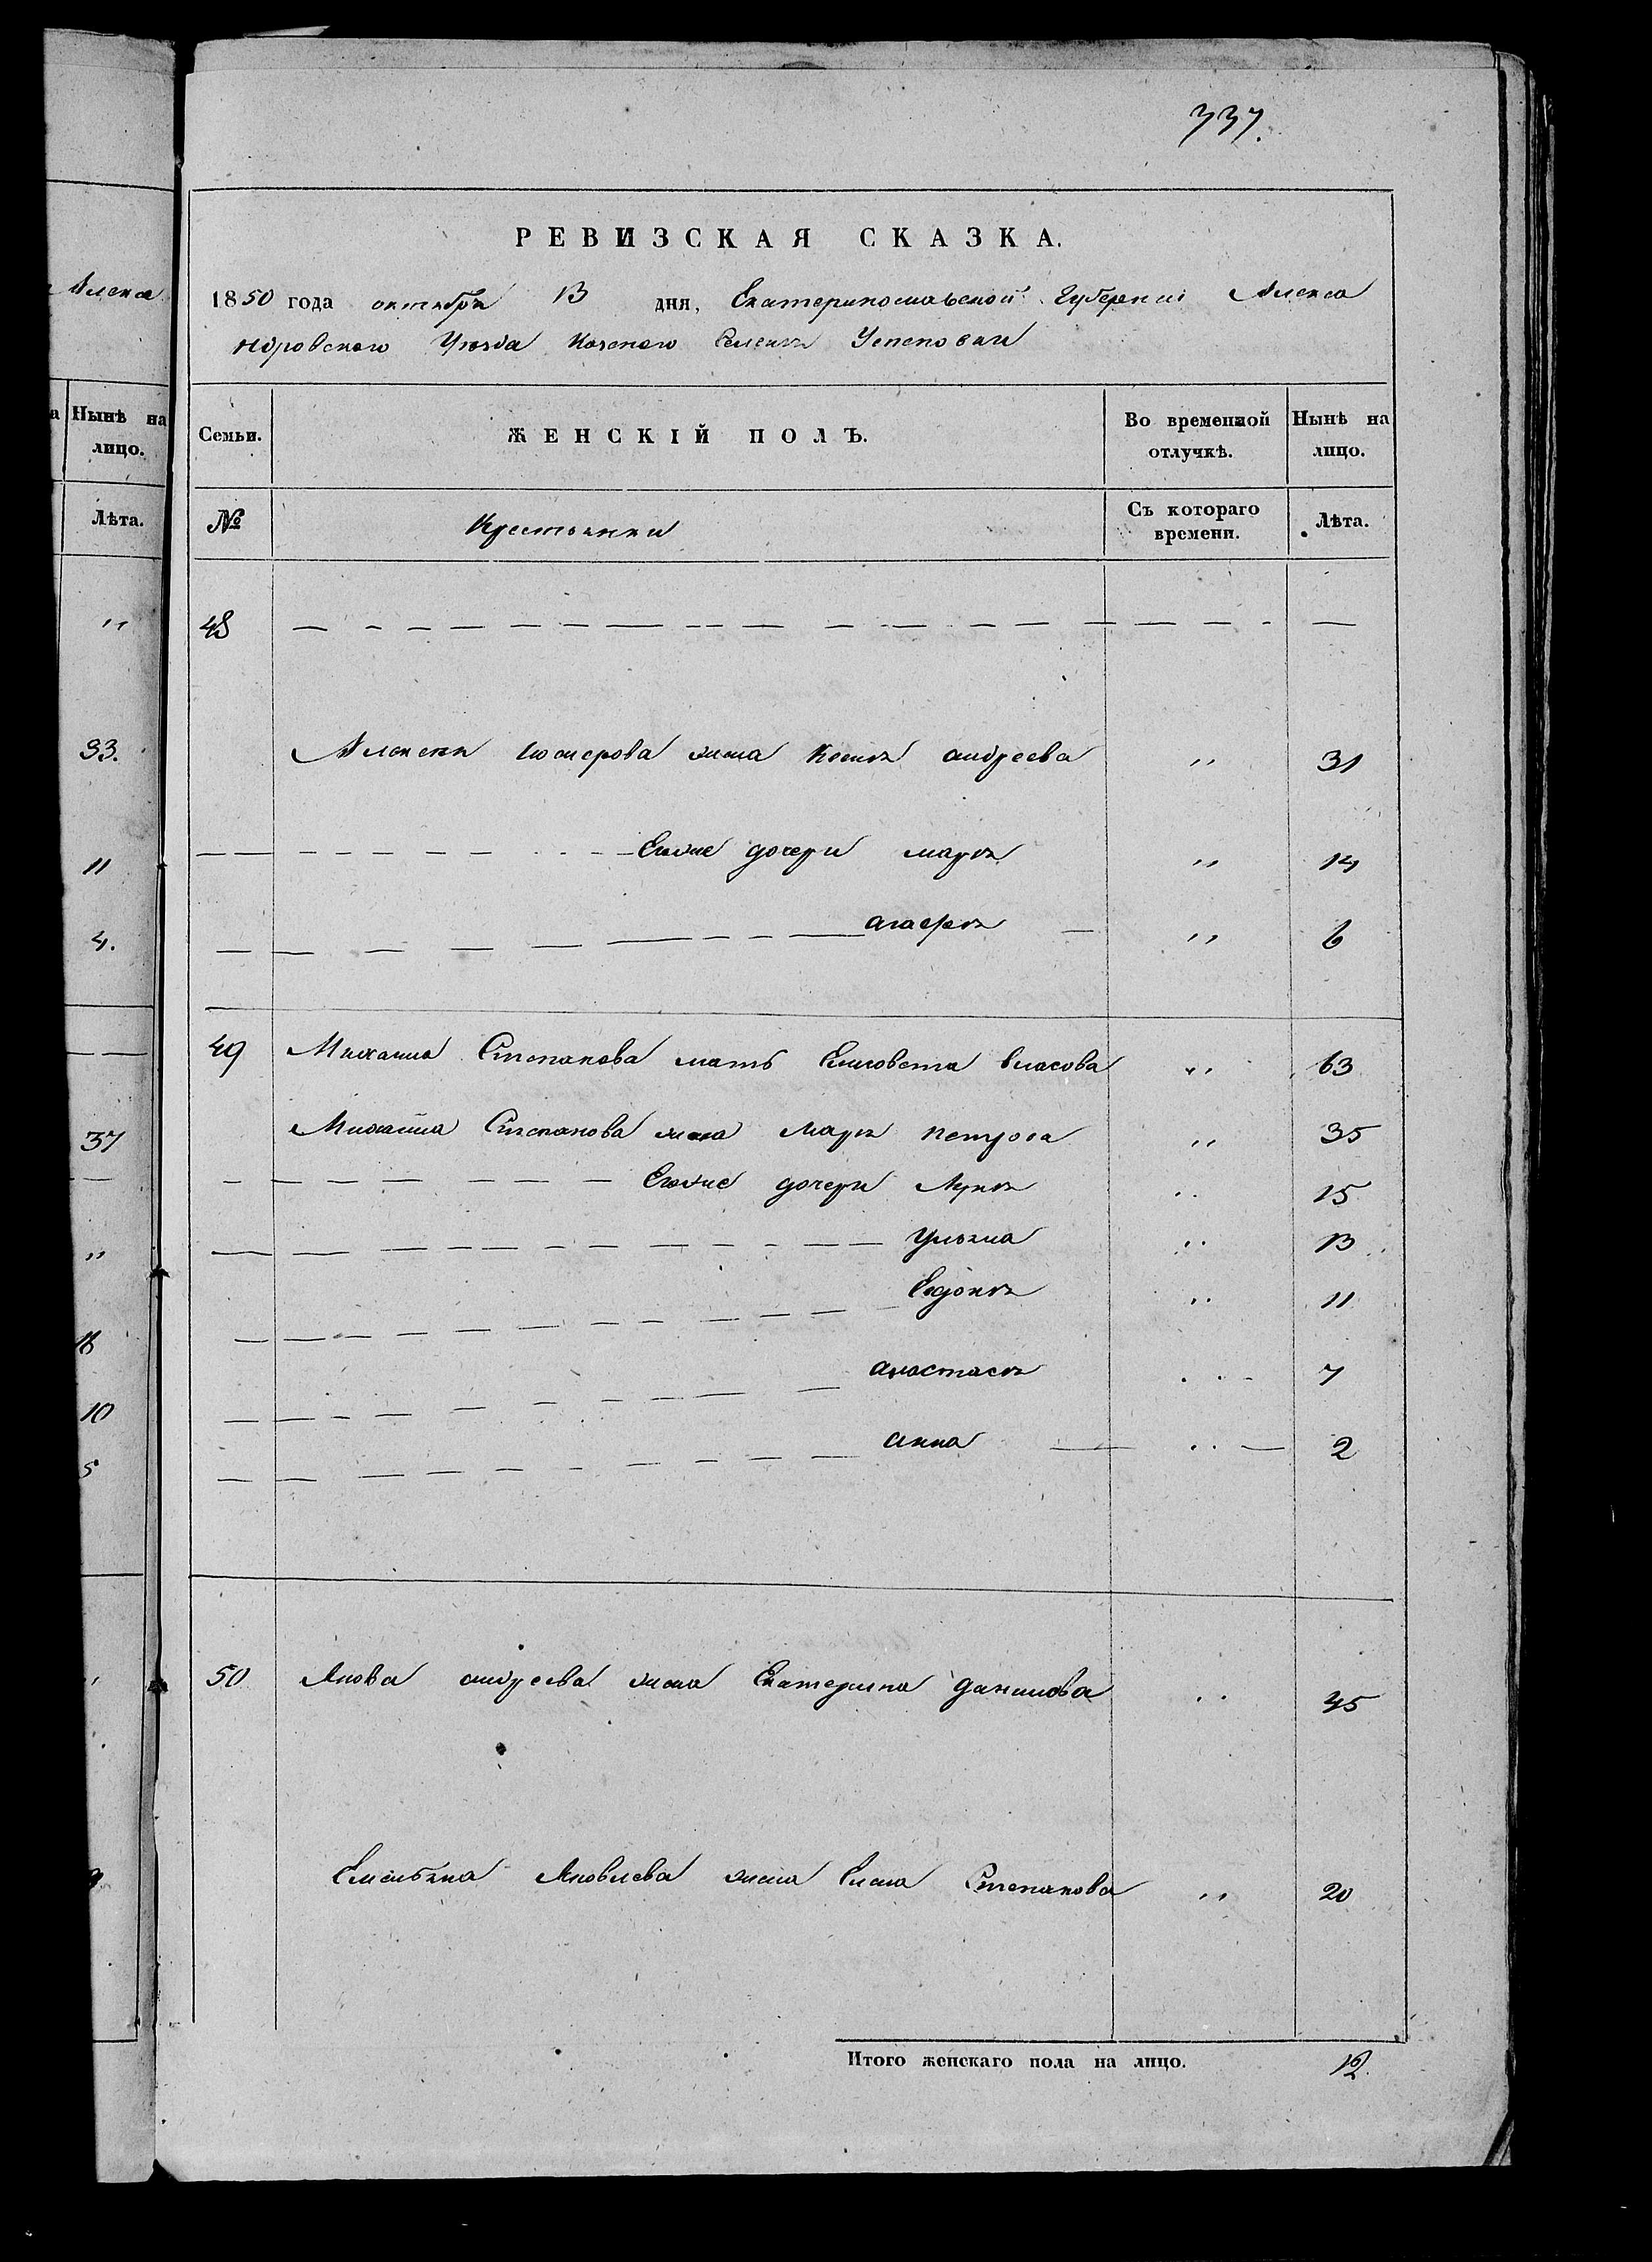 337.
РЕВИЗСКАЯ СКАЗКА.
1850 года октября 13 дня, Екатеринославской Губернии Алекса
ндровскаго Уезда Селения
Алекса
Нынѣ на лицо.
Лѣта.
"
33.
11
4.
37
"
18
10
5
Семьи. ЖЕНСКІЙ ПОЛЪ. Во временной отлучкѣ. Нынѣ на лицо.
№ Крестьянки Съ котораго времени. Лѣта.
48
Алексея жена Ксения андреева " 31
Егоже дочери марья " 14
агафья " 6
49 Михаила Степанова мать Елисовета власова " 63
Михаила Степанова жена Марья петрова " 35
Егоже дочери " 15
Ульяна " 13
Евдокия " 11
анастасия " 7
анна " 2
50 Якова андреева жена Екатерина данилова " 45
Емельяна Яковлева жена Елена Степанова " 20
Итого женскаго пола на лицо. 12.